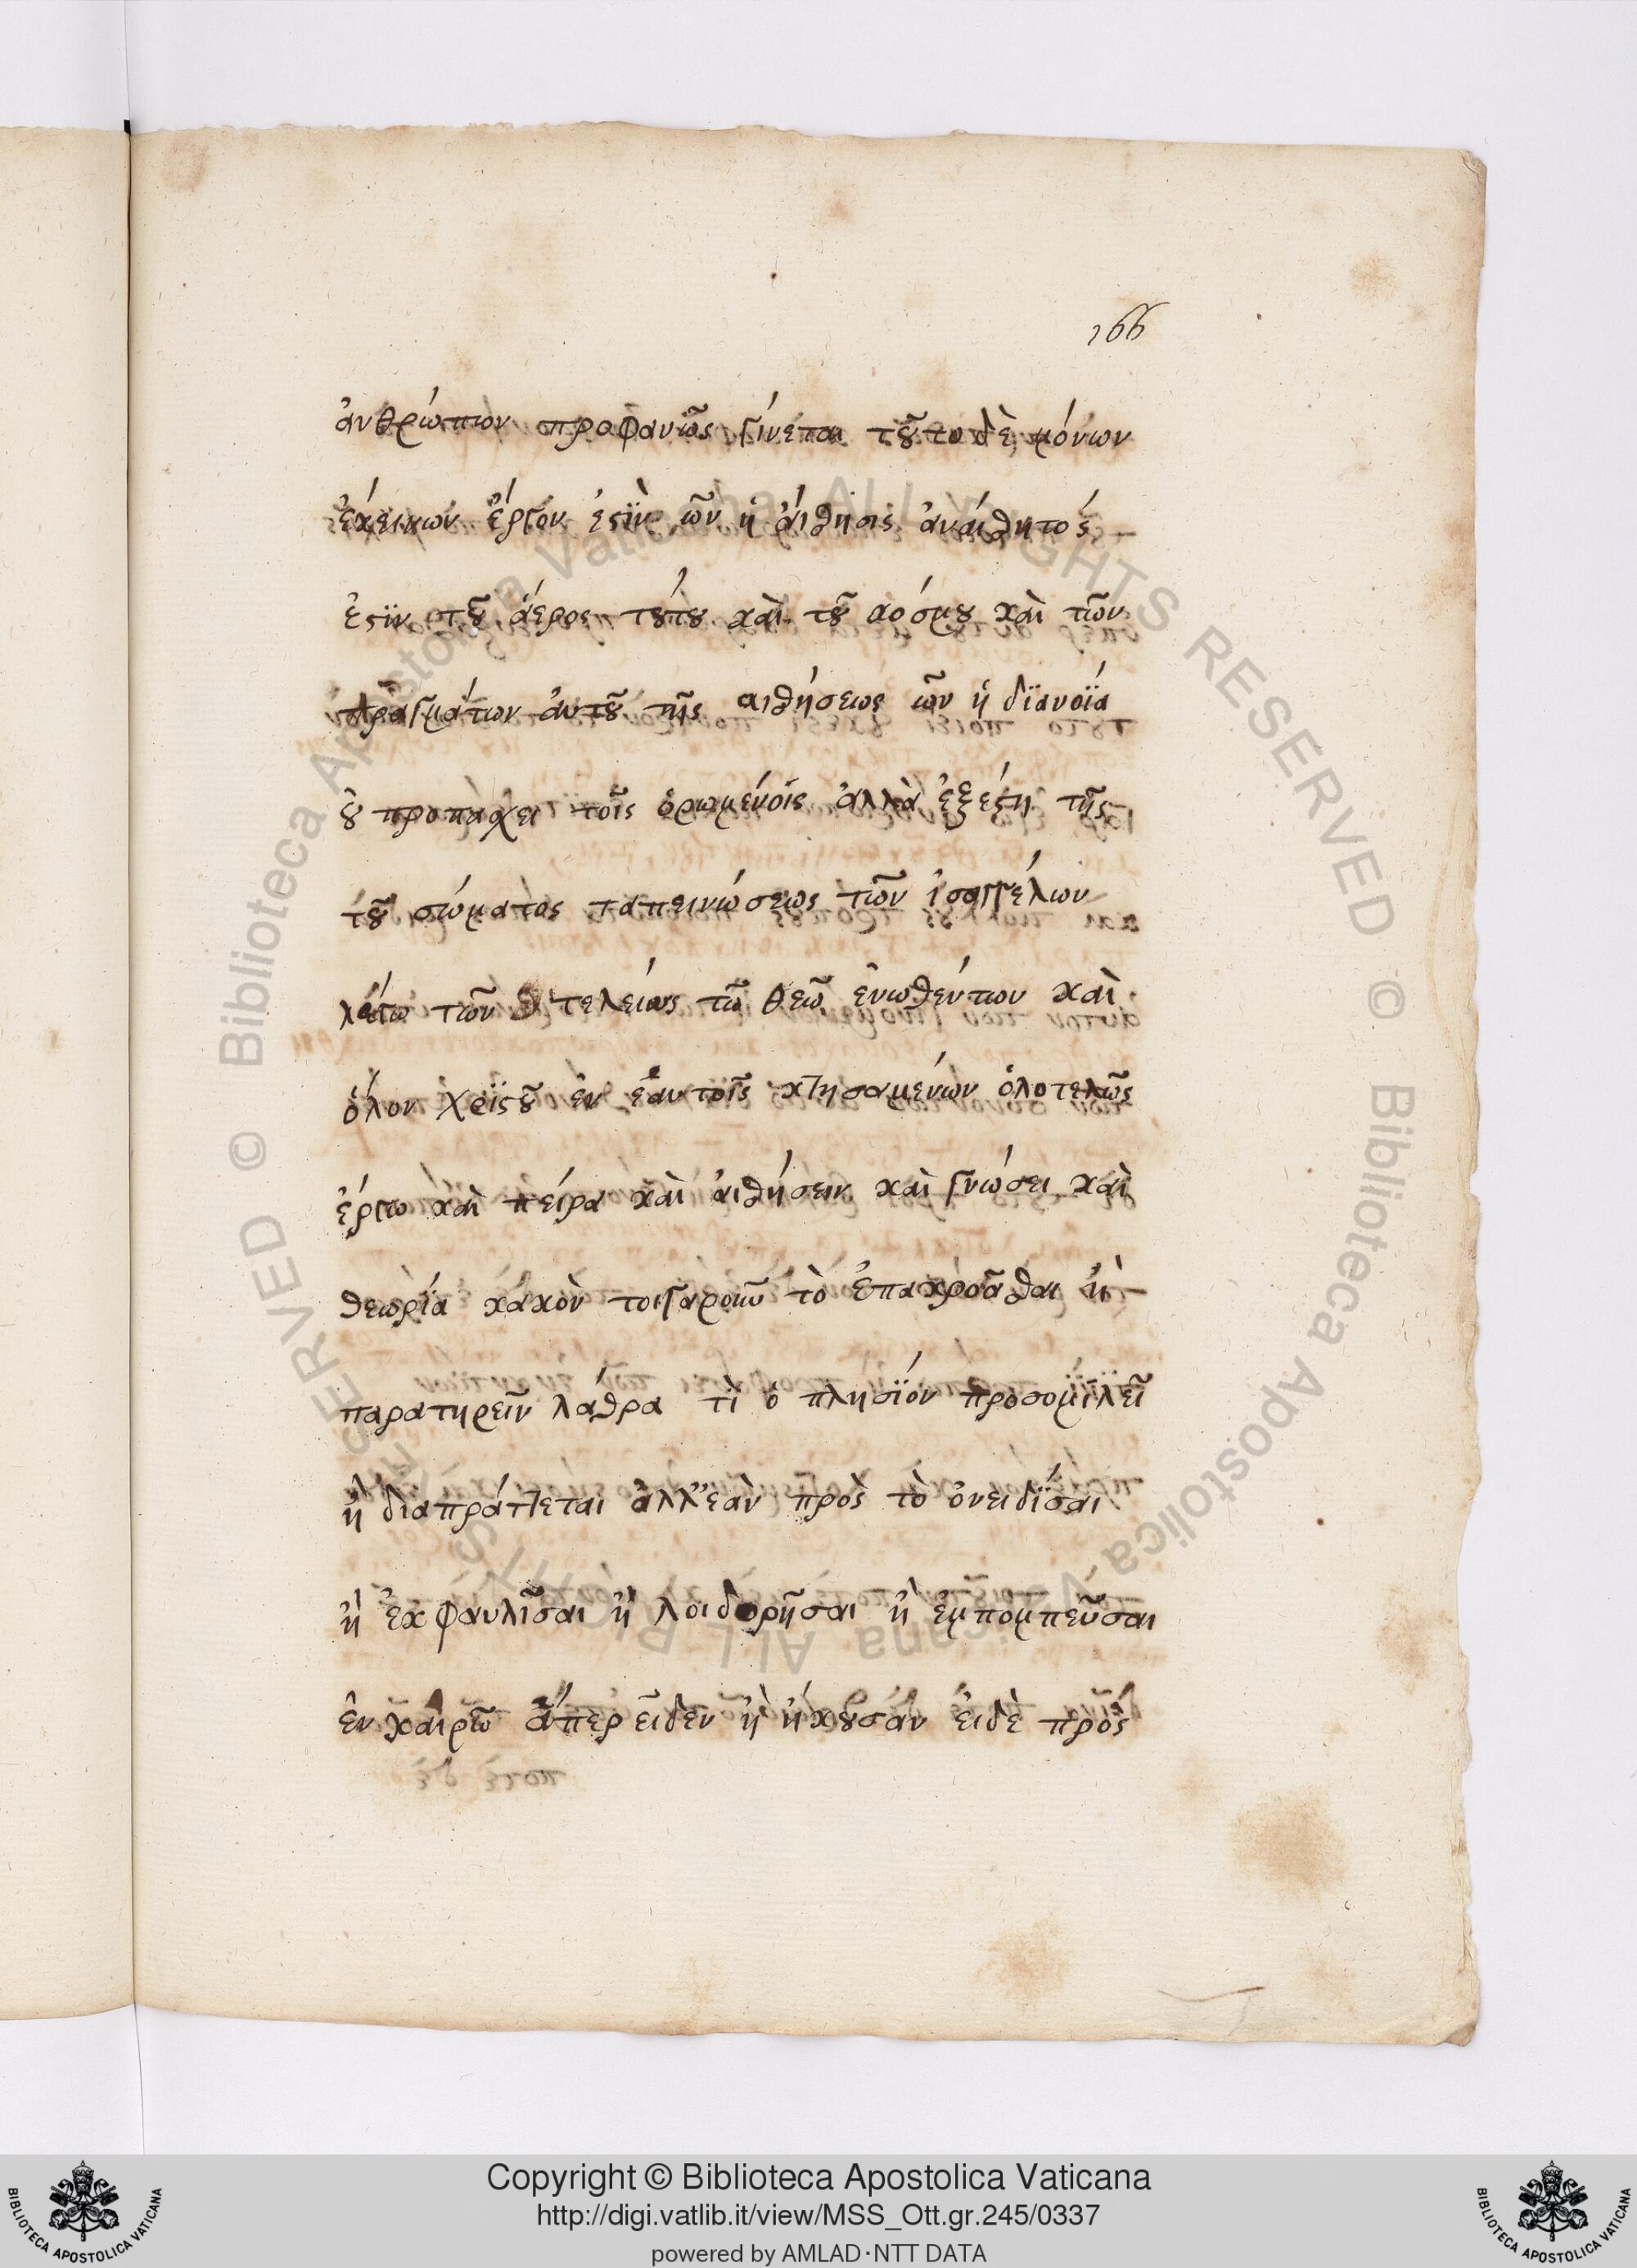 166
ἀνθρώπων προφανῶς γίνεται τοῦτο δὲ μόνων
ἐκείνων ἔργον ἐστῒν ὧν ἡ ἄισθησις ἀναίσθητός
ἐστϊν τοῦ ἀέρος τούτου καὶ τοῦ κόσμου καὶ τῶν
πραγμάτων ἀυτοῦ τῆς αισθήσεως ὧν ἡ δϊανοϊά
οὐ προπάσχει τοῖς ὁρωμένοις ἀλλὰ ἐξέστη τῆς
τοῦ σώματος ταπεινώσεως τῶν ἰσαγγέλων
λέγω τῶν τελείως τῶ θεῶ ἑνωθέντων καὶ
ὅλον χρϊστοῦ ἐν ἑαυτοῖς κτησαμένων ὁλοτελῶς
ἔργω καὶ πείρα καὶ ἀισθήσειν καὶ γνώσει καὶ
θεωρία κακὸν τοιγαροῦν τὸ ἐπακροᾶσθαι ἢ
παρατηρεῖν λάθρα τὶ ὁ πλησϊόν προσομϊλεῖ
ἢ διαπράττεται ἀλλ' ἐὰν πρὸς τὸ ὀνειδΐσαι
ἢ ἐκφαυλῖσαι ἢ λοιδορῆσαι ἢ ἐμπομπεῦσαι
ἐν καιρῶ ἅπερ εἶδεν ἢ ἤκουσαν ἐιδὲ πρὸς
Copyright © Biblioteca Apostolica Vaticana
http://digi.vatlib.it/view/MSS_Ott.gr.245/0337
powered by AMLAD·NTT DATA
BIBLIOTECA APOSTOLICA VATICANA
BIBLIOTECA APOSTOLICA VATICANA